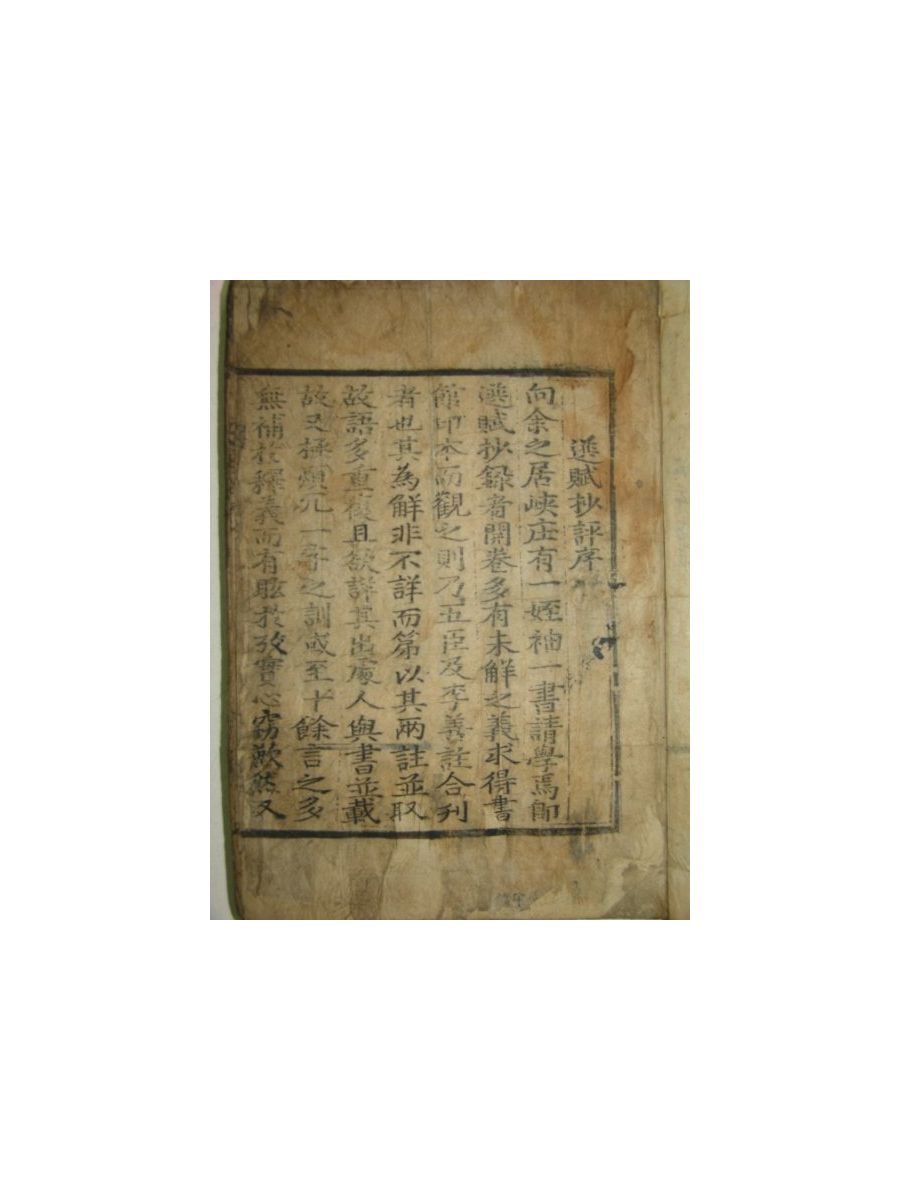 選賦抄評序
向余之居峽庄有一姪袖一書請學焉卽
選賦抄錄者開卷多有未解之義求得書
館印本而觀之則乃五臣及李善註合刊
者也其為解非不詳而第以其兩註並取
故語多重複且欲詳其出處人與書並載
故又極煩冗一字之訓或至十餘言之多
無補於釋義而有眩於攷實心竊歉然又